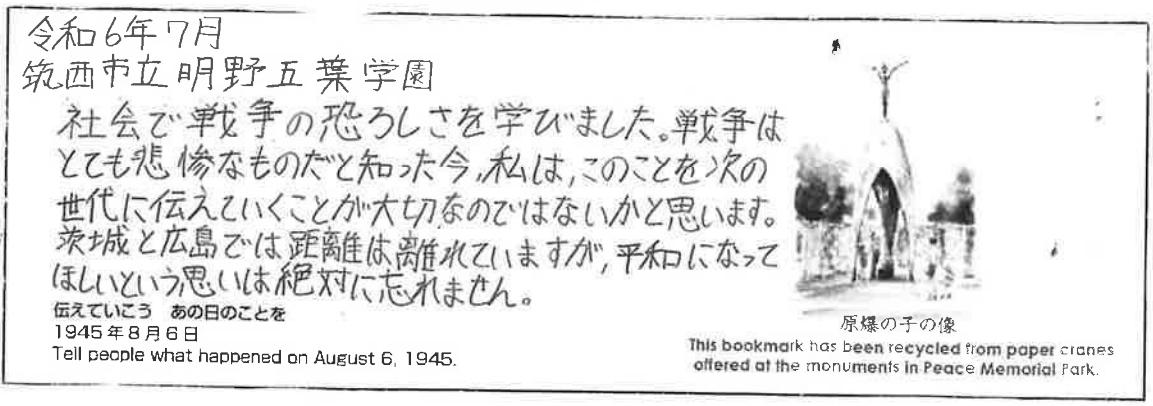 令和6年7月
筑西市立明野五葉学園
社会で戦争の恐ろしさを学びました。戦争は
とても悲惨なものだと知った今、私は、このことを次の
世代に伝えていくことが大切なのではないかと思います。
茨城と広島では距離は離れていますが、平和になって
ほしいという思いは絶対に忘れません。
伝えていこう あの日のことを
1945年8月6日
Tell people what happened on August 6, 1945.
原爆の子の像
This bookmark has been recycled from paper cranes
offered at the monuments in Peace Memorial Park.